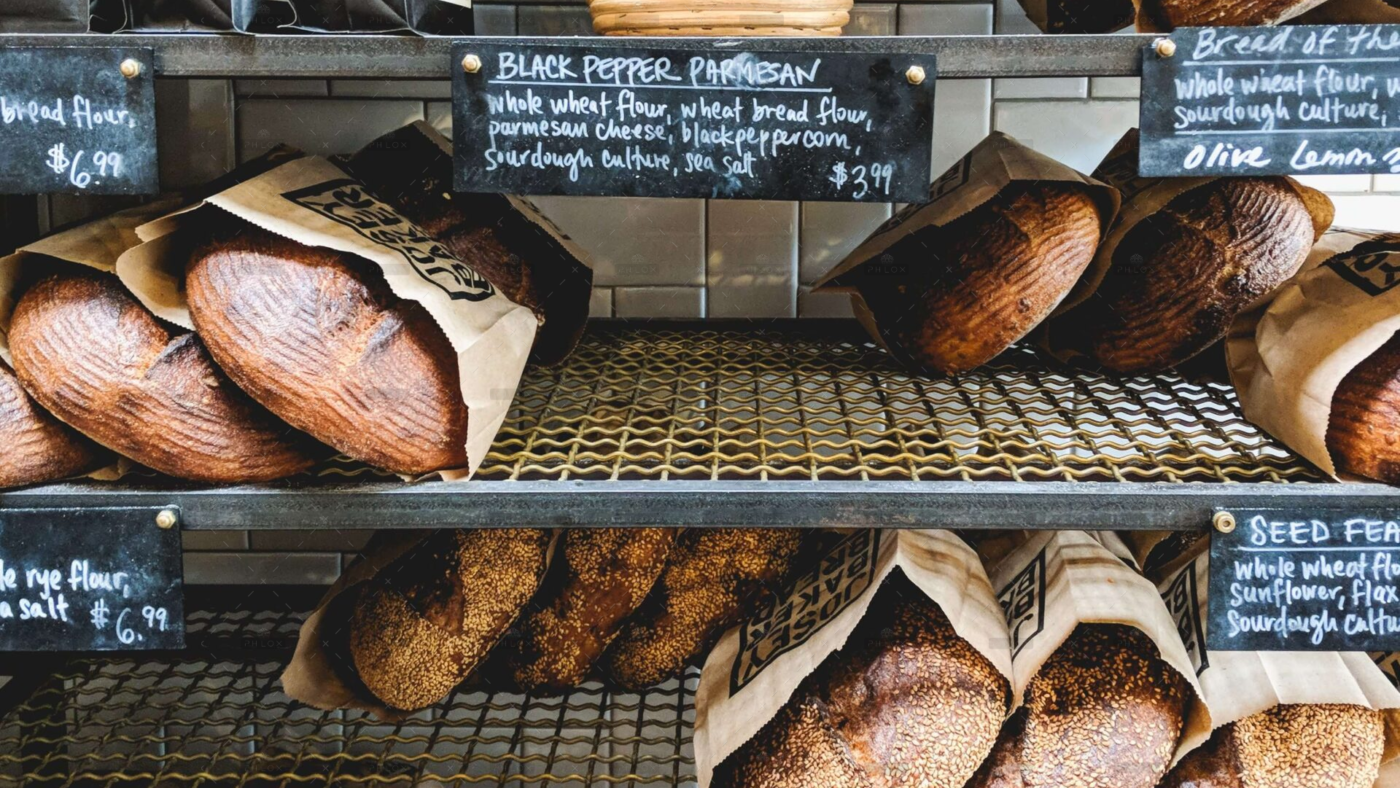 bread flour,
$6.99
BLACK PEPPER PARMESAN
whole wheat flour, wheat bread flour,
parmesan cheese, blackpeppercorn,
sourdough culture, sea salt
$3.99
Bread of the
whole wheat flour,
sourdough culture,
Olive Lemon
JOSEY
BAKER
BREAD
rye flour,
salt $6.99
JOSEY
BAKER
BR
SEED FEA
whole wheat flo
sunflower, flax
sourdough cultu